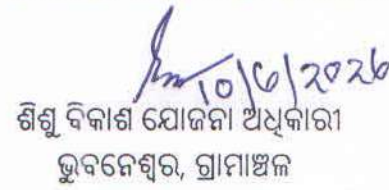 10/6/2026
ଶିଶୁ ବିକାଶ ଯୋଜନା ଅଧିକାରୀ
ଭୁବନେଶ୍ୱର, ଗ୍ରାମାଞ୍ଚଳ